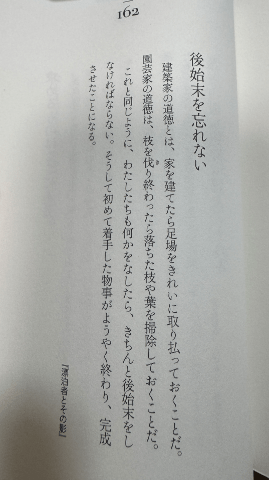 162
後始末を忘れない
建築家の道徳とは、家を建てたら足場をきれいに取り払っておくことだ。
園芸家の道徳は、枝を伐り終わったら落ちた枝や葉を掃除しておくことだ。
これと同じように、わたしたちも何かをなしたら、きちんと後始末をし
なければならない。そうして初めて着手した物事がようやく終わり、完成
させたことになる。
『漂泊者とその影』